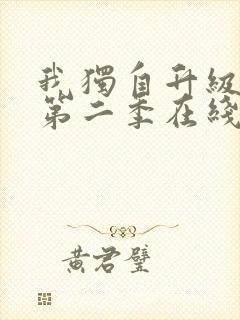 我獨自升級
第二季在綫
黃君璧